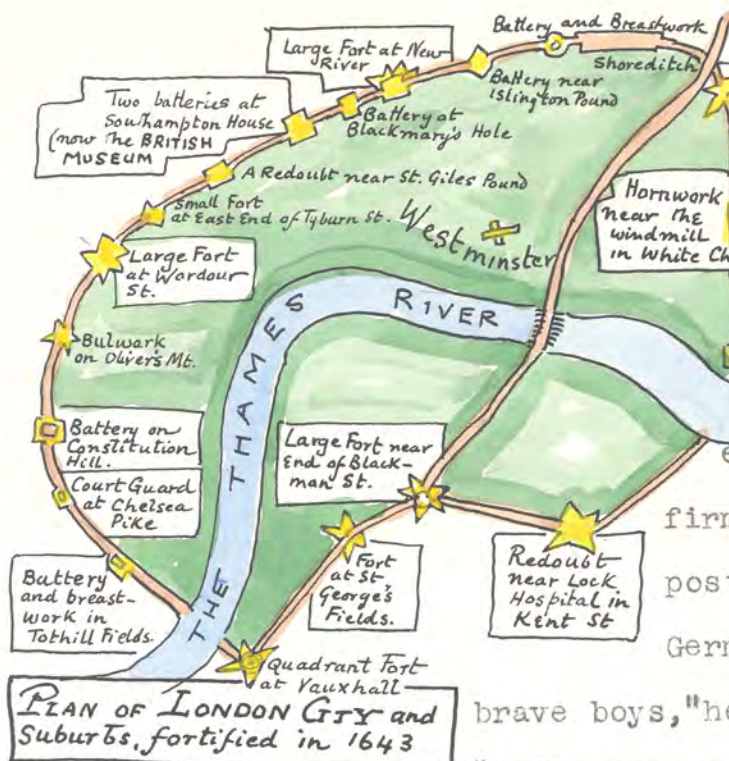 Battery and Breastwork
Shoreditch
Large Fort at New
River
Battery near
Islington Pound
Two batteries at
Southampton House
(now the BRITISH
MUSEUM
Battery at
Blackmary's Hole
A Redoubt near St. Giles Pound
Small Fort
at East End of Tyburn St.
Westminster
Hornwork
near the
windmill
in White Ch
Large Fort
at Wardour
St.
THE THAMES RIVER
Bulwark
on Oliver's Mt.
Battery on
Constitution
Hill.
Court Guard
at Chelsea
Pike
Large Fort near
End of Black-
man St.
Battery
and breast-
work in
Tothill Fields.
Fort
at St.
George's
Fields.
Redoubt
near Lock
Hospital in
Kent St
Quadrant Fort
at Vauxhall
PLAN OF LONDON CITY and
Suburbs, fortified in 1643
e
firm
post
Germ
brave boys,"he